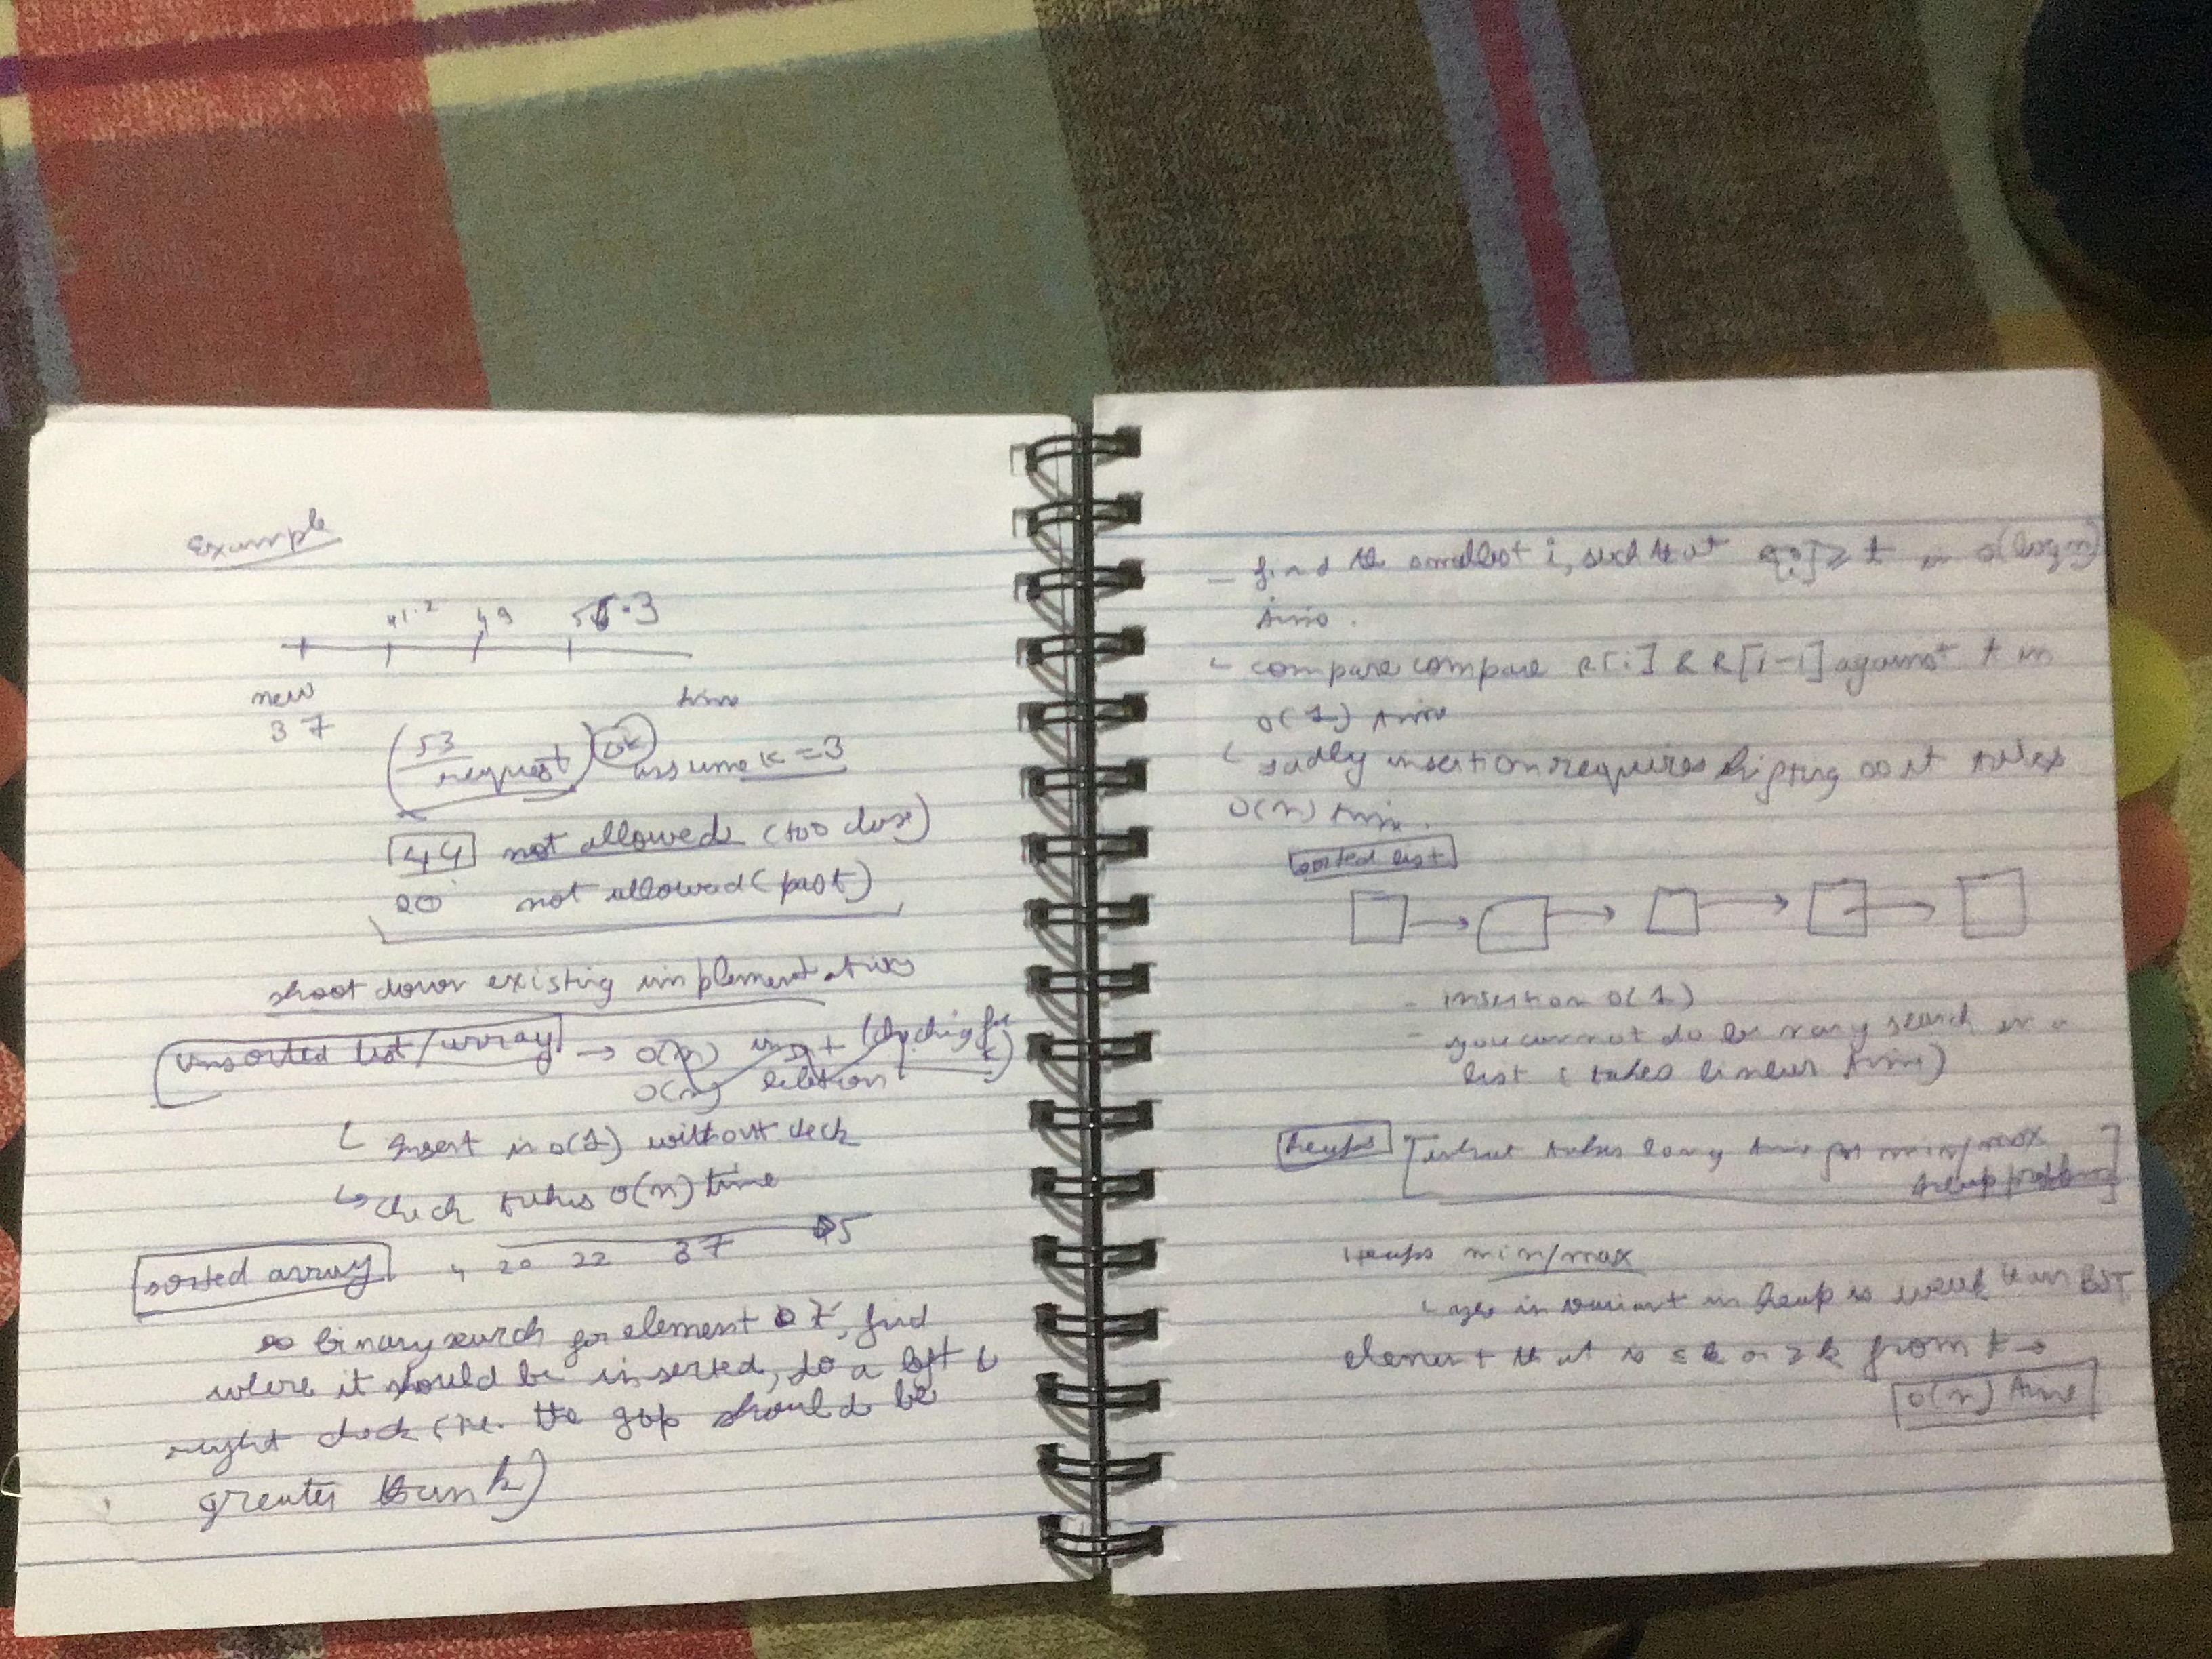 Example
41.2 49 56.3
new
37
time
53 request ok
assume k = 3
44 not allowed (too close)
20 not allowed (past)
shoot down existing implementations
unsorted list/array → O(n) ins +
O(n)
Insert in O(1) without check
check takes O(n) time
sorted array 4 20 22 37 45
binary search for element t, find
where it should be inserted, do a left &
right check (i.e. the gap should be
greater than k)
- find the smallest i, such that R[i] ≥ t in O(log n)
time.
compare compare R[i] & R[i-1] against t in
O(1) time
sadly insertion requires shifting as it takes
O(n) time.
sorted list
- insertion O(1)
- you cannot do binary search in a
list (takes linear time)
heaps [what takes long time for min/max
heap
Heaps min/max
invariant in heap is weak than BST
element that is ≤ k or ≥ k from t →
O(n) time